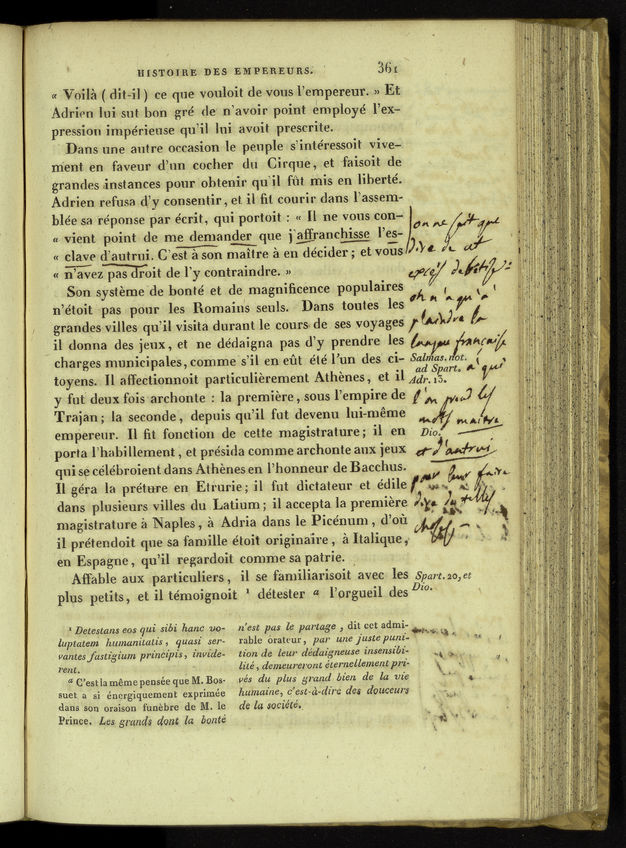 HISTOIRE DES EMPEREURS. 361
« Voilà ( dit-il ) ce que vouloit de vous l'empereur. » Et
Adrien lui sut bon gré de n'avoir point employé l'ex-
pression impérieuse qu'il lui avoit prescrite.
Dans une autre occasion le peuple s'intéressoit vive-
ment en faveur d'un cocher du Cirque, et faisoit de
grandes instances pour obtenir qu'il fût mis en liberté.
Adrien refusa d'y consentir, et il fit courir dans l'assem-
blée sa réponse par écrit, qui portoit : « Il ne vous con-
« vient point de me demander que j'affranchisse l'es-
« clave d'autrui. C'est à son maître à en décider ; et vous
« n'avez pas droit de l'y contraindre. »
Son système de bonté et de magnificence populaires
n'étoit pas pour les Romains seuls. Dans toutes les
grandes villes qu'il visita durant le cours de ses voyages
il donna des jeux, et ne dédaigna pas d'y prendre les
charges municipales, comme s'il en eût été l'un des ci-
toyens. Il affectionnoit particulièrement Athènes, et il
y fut deux fois archonte : la première, sous l'empire de
Trajan ; la seconde, depuis qu'il fut devenu lui-même
empereur. Il fit fonction de cette magistrature ; il en
porta l'habillement, et présida comme archonte aux jeux
qui se célébroient dans Athènes en l'honneur de Bacchus.
Il géra la préture en Etrurie ; il fut dictateur et édile
dans plusieurs villes du Latium ; il accepta la première
magistrature à Naples, à Adria dans le Picénum, d'où
il prétendoit que sa famille étoit originaire, à Italique,
en Espagne, qu'il regardoit comme sa patrie.
Affable aux particuliers, il se familiarisoit avec les
plus petits, et il témoignoit ¹ détester ª l'orgueil des
on ne sait que
dire de cet
excès de bêtise :
on n'a qu'à
plaindre la
langue française
Salmas. not.
ad Spart.
Adr. 13.
à qui
l'on prend les
mots maitre
Dio.
et d'autrui
pour leur faire
dire de telles
choses –
Spart. 20, et
Dio.
¹ Detestans eos qui sibi hanc vo-
luptatem humanitatis, quasi ser-
vantes fastigium principis, invide-
rent.
ª C'est la même pensée que M. Bos-
suet a si énergiquement exprimée
dans son oraison funèbre de M. le
Prince. Les grands dont la bonté
n'est pas le partage, dit cet admi-
rable orateur, par une juste puni-
tion de leur dédaigneuse insensibi-
lité, demeureront éternellement pri-
vés du plus grand bien de la vie
humaine, c'est-à-dire des douceurs
de la société.